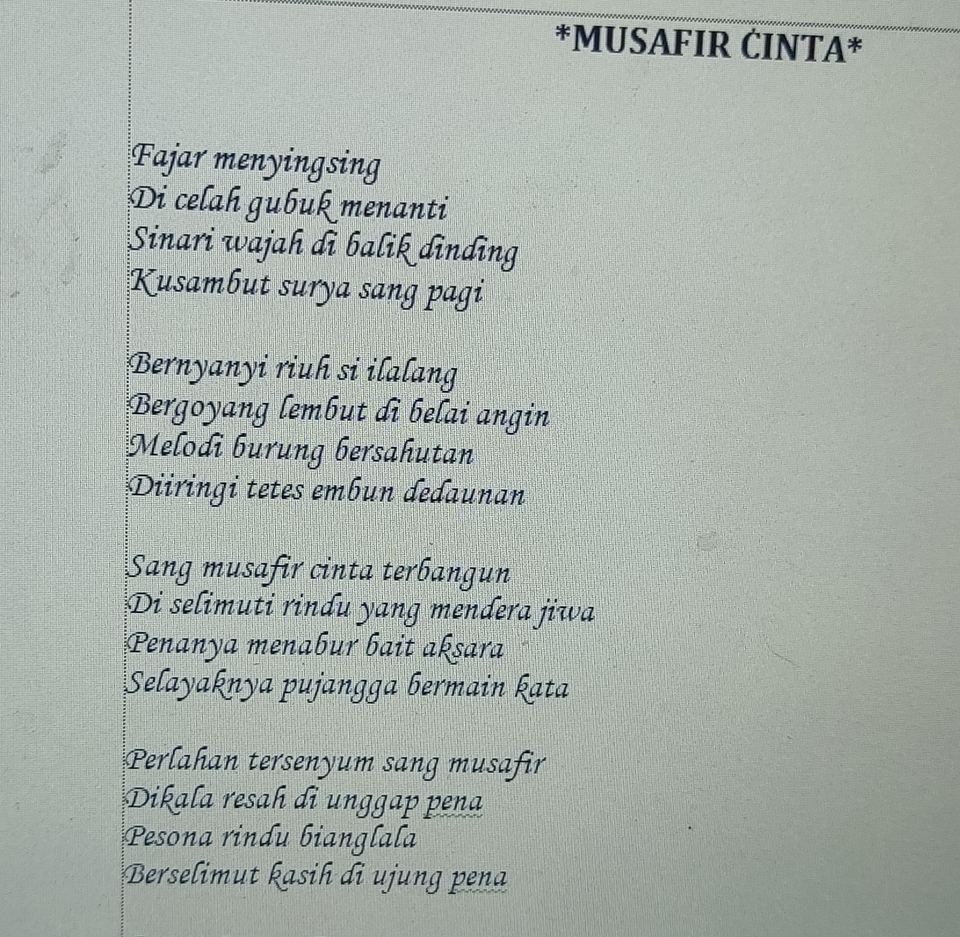 *MUSAFIR CINTA*
Fajar menyingsing
Di celah gubuk menanti
Sinari wajah di balik dinding
Kusambut surya sang pagi
Bernyanyi riuh si ilalang
Bergoyang lembut di belai angin
Melodi burung bersahutan
Diiringi tetes embun dedaunan
Sang musafir cinta terbangun
Di selimuti rindu yang mendera jiwa
Penanya menabur bait aksara
Selayaknya pujangga bermain kata
Perlahan tersenyum sang musafir
Dikala resah di unggap pena
Pesona rindu bianglala
Berselimut kasih di ujung pena